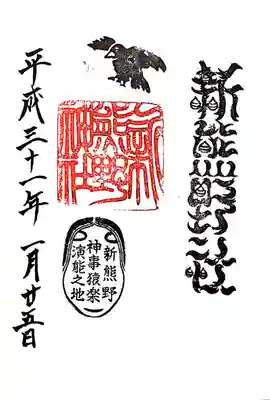 新熊野神社
新熊野神社
新熊野
神事猿楽
演能之地
平成三十一年 一月廿五日